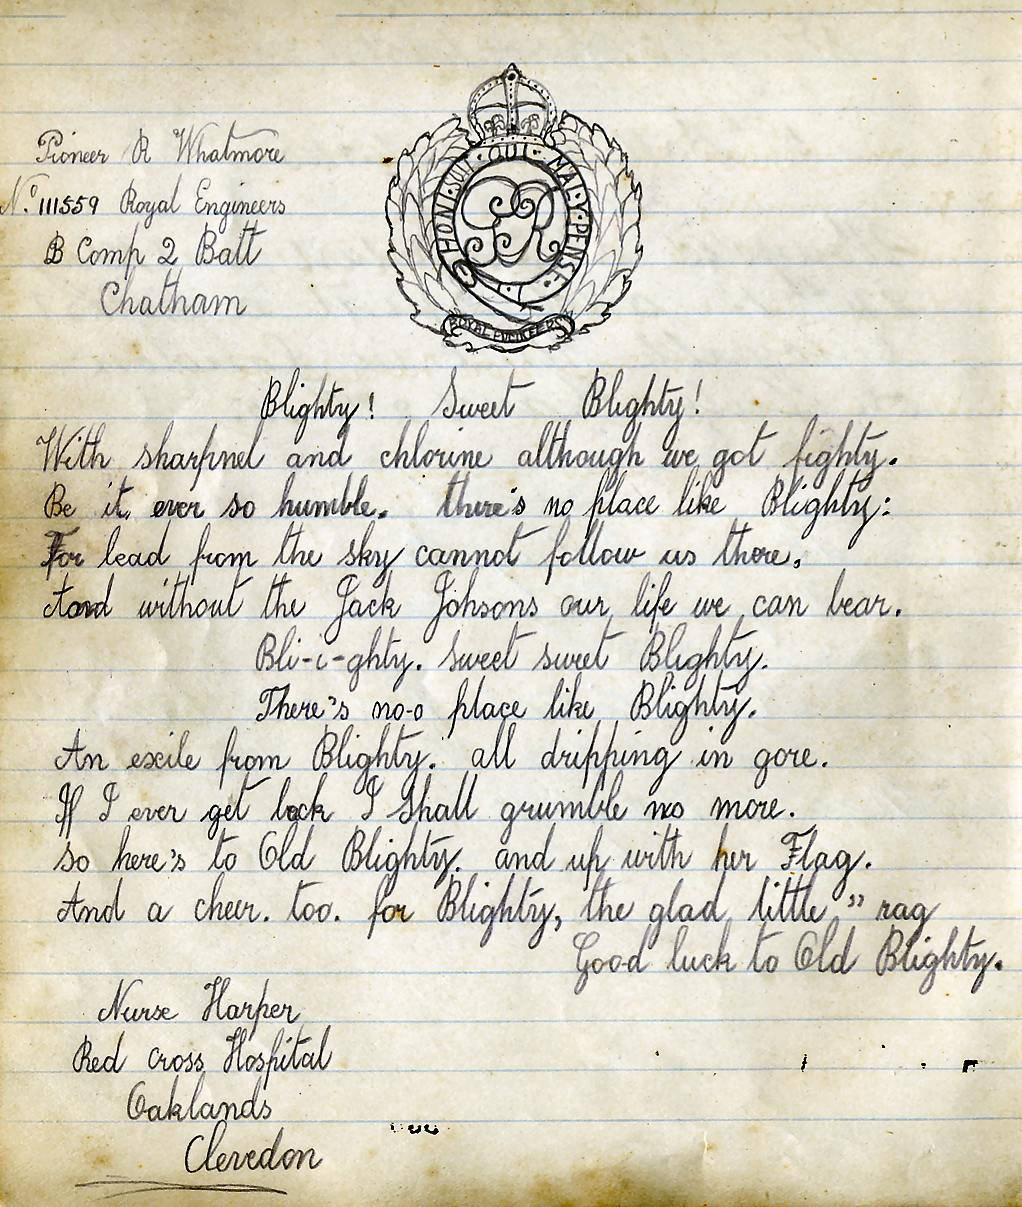 Pioneer R Whatmore
No. 111559 Royal Engineers
B Comp 2 Batt
Chatham
HONI·SOIT·QUI·MAL·Y·PENSE·
GR
ROYAL ENGINEERS
Blighty! Sweet Blighty!
With sharpnel and chlorine although we got fighty.
Be it, ever so humble. there's no place like Blighty:
For lead from the sky cannot follow us there,
And without the Jack Johsons our life we can bear.
Bli-i-ghty. Sweet sweet Blighty.
There's no-o place like Blighty.
An exile from Blighty. all dripping in gore.
If I ever get back I shall grumble no more.
So here's to Old Blighty. and up with her Flag.
And a cheer. too. for Blighty, the glad little " rag
Good luck to Old Blighty.
Nurse Harper
Red Cross Hospital
Oaklands
Clevedon